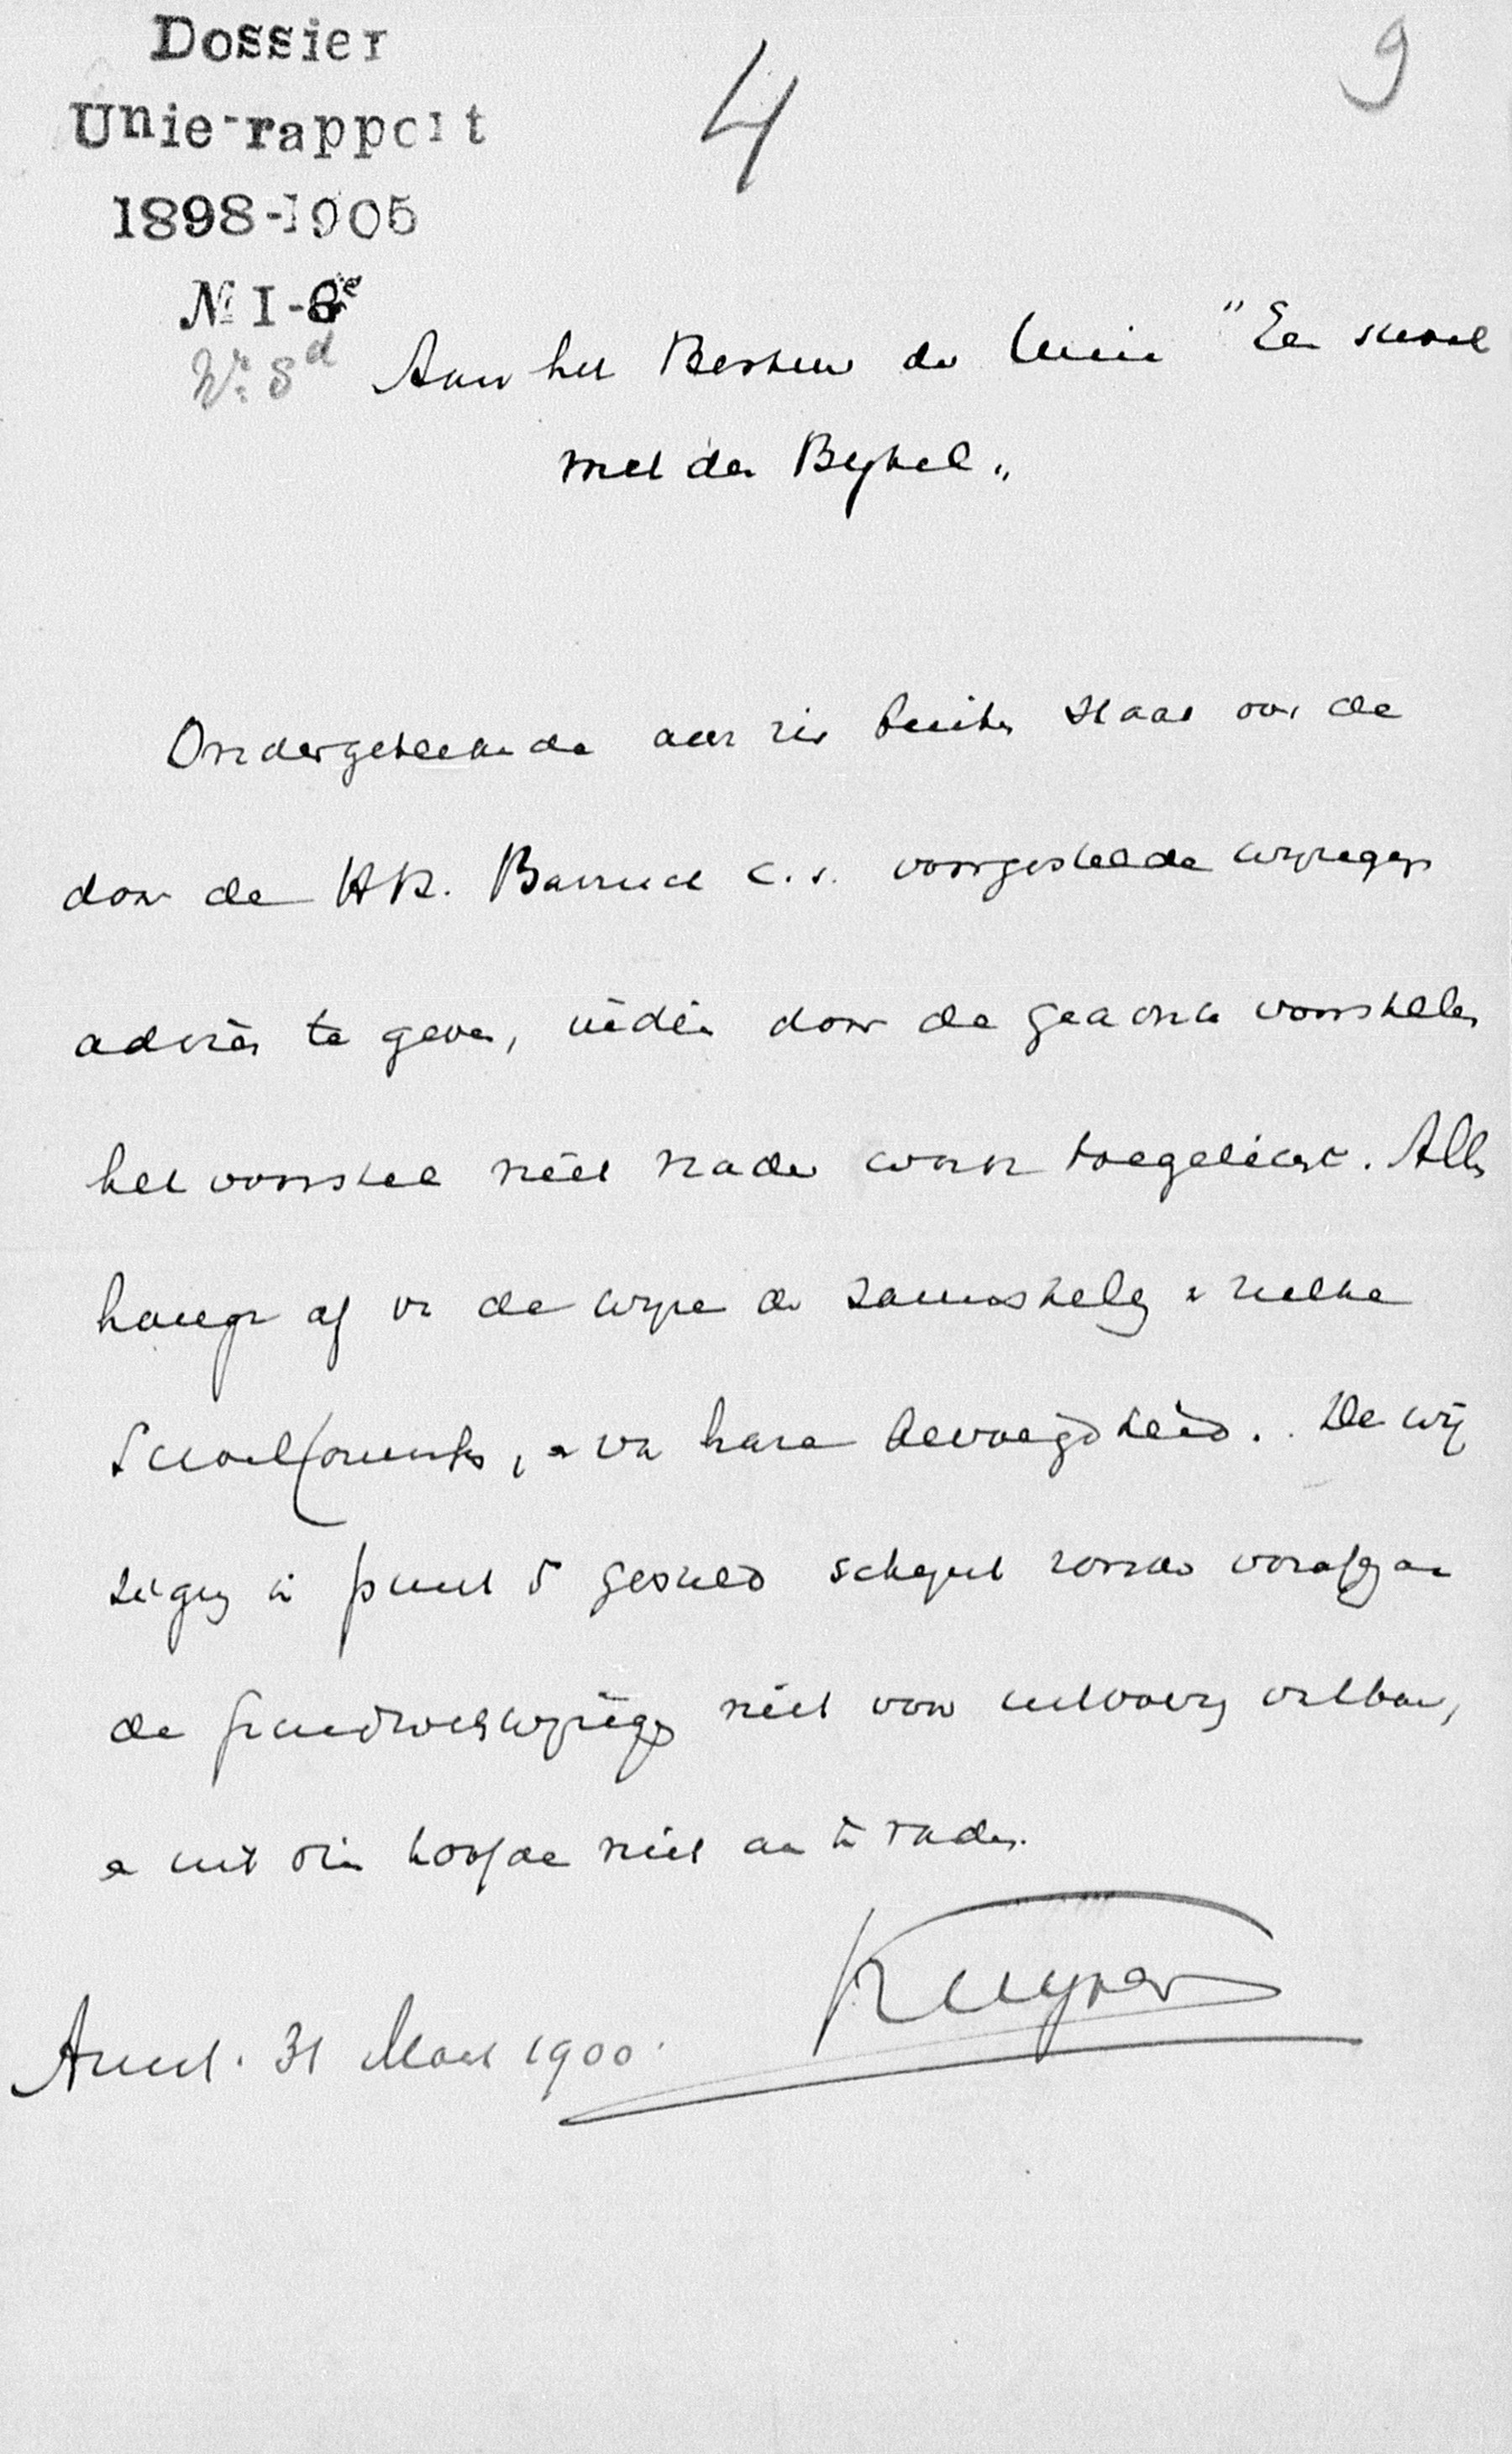 Dossier
Unie-rapport
1898-1905
4
9
No I-8e
No 8d
Aan het Bestuur der Unie "Een school
met den Bijbel"
Ondergeteekende acht zich buiten staat over de
door de HH. c.s. voorgestelde wijzigingen
advies te geven, indien door de geachte voorstellers
het voorstel niet nader wordt toegelicht. Alles
hangt af van de wijze der samenstelling van zulke
Schoolcomités, en van hare bevoegdheid. De wij
ziging in punt 5 gesteld schijnt zonder voorafgaande
grondwetswijziging niet voor uitvoering vatbaar,
en uit dien hoofde niet aan te raden.
Kuyper
Amst. 31 Maart 1900.